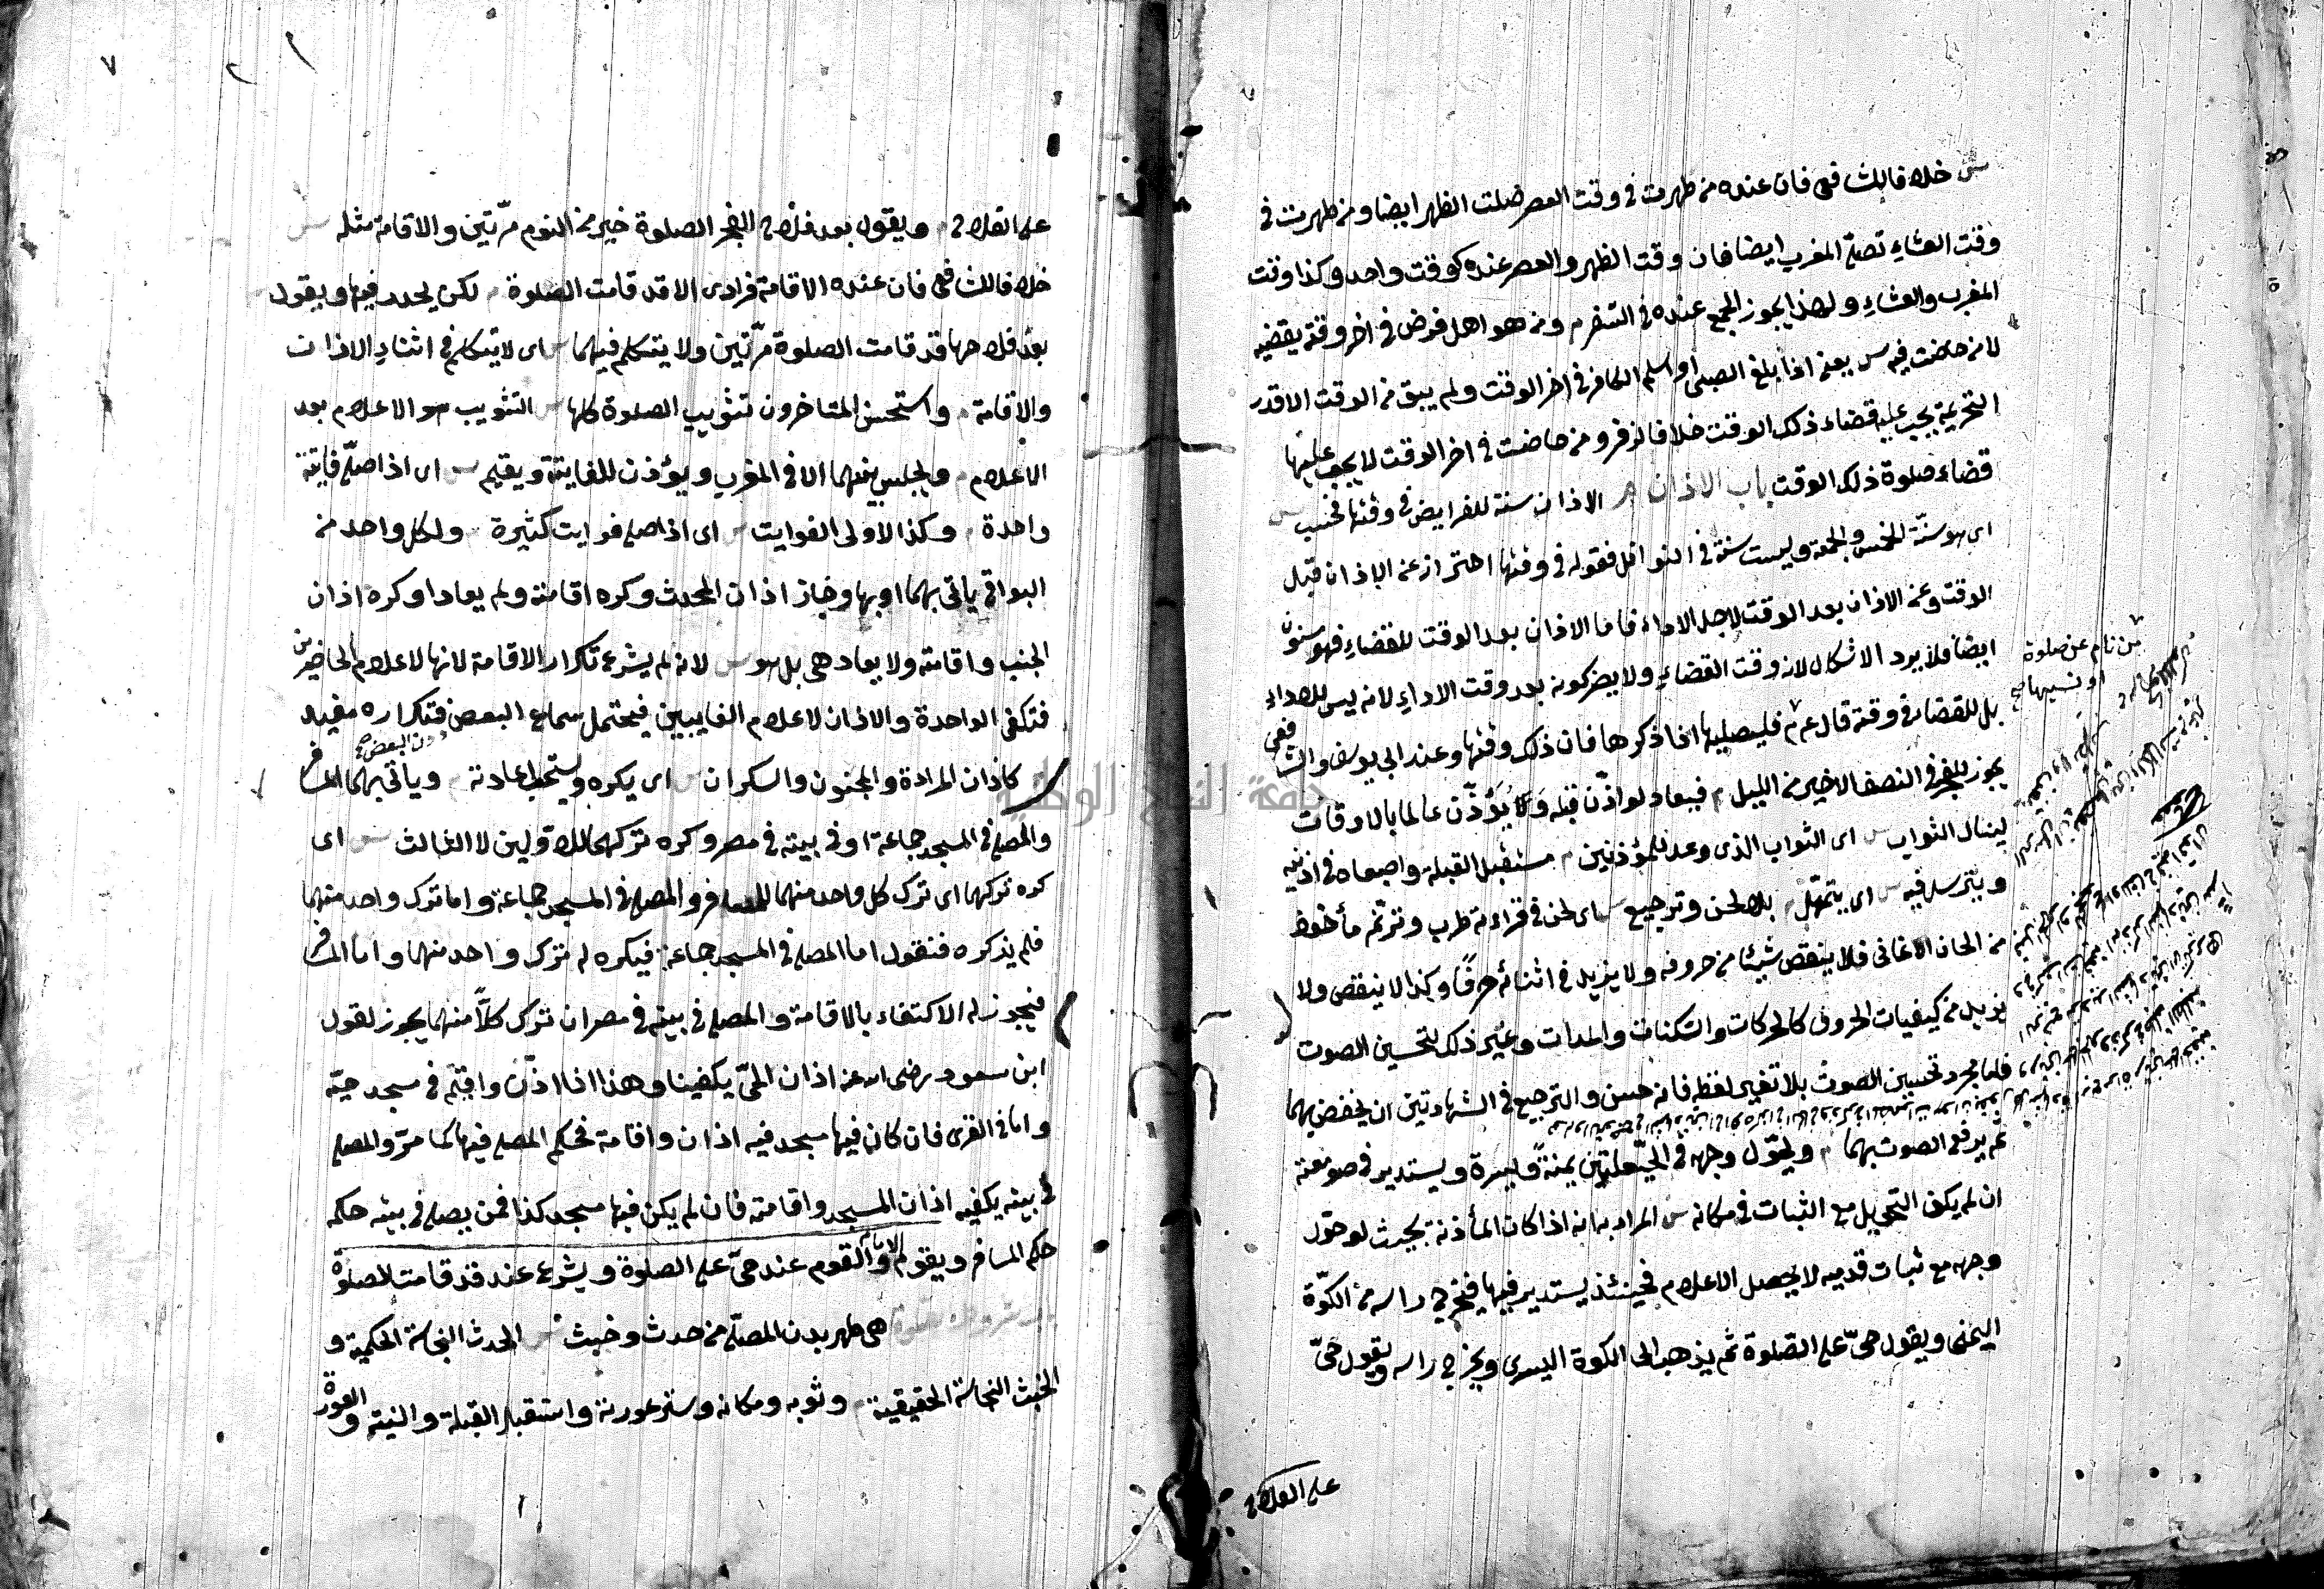 ش خلافا للشافعي فان عنده من طهرت في وقت العصر صلت الظهر ايضا ومن طهرت في
وقت العشاء تصلي المغرب ايضا فان وقت الظهر والعصر عنده كوقت واحد وكذا وقت
المغرب والعشاء ولهذا يجوز الجمع عنده في السفر م ومن هو اهل فرض في اخر وقته يقضيه
لا من حاضت فيه ش يعني اذا بلغ الصبي او اسلم الكافر في اخر الوقت ولم يبق من الوقت الا قدر
التحريمة يجب عليه قضاء ذلك الوقت خلافا لزفر ومن حاضت في اخر الوقت لا يجب عليها
قضاء صلوة ذلك الوقت باب الاذان م الاذان سنة للفرايض في وقتها فحسب ش
اي هو سنة للخمس والجمعة وليست سنة في النوافل فقوله في وقتها احتراز عن الاذان قبل
الوقت وعن الاذان بعد الوقت لاجل الاداء فاما الاذان بعد الوقت للقضاء فهو مسنون
ايضا فلا يرد الاشكال لانه وقت القضاء ولا يضر كونه بعد وقت الاداء لانه ليس للاداء
بل للقضاء في وقته قال عم فليصليها اذا ذكرها فان ذلك وقتها وعند ابي يوسف والشافعي
يجوز للفجر في النصف الاخير من الليل م فيعاد لو اذن قبله ويؤذن عالما بالاوقات
لينال الثواب ش اي الثواب الذي وعد للمؤذنين م مستقبل القبلة واصبعاه في اذنيه
ويترسل فيه ش اي يتمهل م بلا لحن وترجيع ش اي لحن في قراءته طرب وترنم مأخوذ
من الحان الاغاني فلا ينقص شيئا من حروفه ولا يزيد في اثنائه حرفا وكذا لا ينقص ولا
يزيد من كيفيات الحروف كالحركات والسكنات والمدات وغير ذلك لتحسين الصوت
فاما مجرد تحسين الصوت بلا تغير لفظ فانه حسن والترجيع في الشهادتين ان يخفض بهما
ثم يرفع الصوت بهما م ويحول وجهه في الحيعلتين يمنة ويسرة ويستدير في صومعته
ان لم يكف التحويل مع الثبات في مكانه ش المراد به انه اذا كان المأذنة بحيث لو حول
وجهه مع ثبات قدميه لا يحصل الاعلام فحينئذ يستدير فيها فيخرج راسه من الكوة
اليمنى ويقول حي على الصلوة ثم يذهب الى الكوة اليسرى ويخرج راسه ويقول حي
على الفلاح
من نام عن صلوة
او نسيها صح
٧
على الفلاح م ويقول بعد فلاح الفجر الصلوة خير من النوم مرتين والاقامة مثله ش
خلافا للشافعي فان عنده الاقامة فرادى الا قد قامت الصلوة م لكن يحدر فيها ويقول
بعد فلاحها قد قامت الصلوة مرتين ولا يتكلم فيهما ش اي لا يتكلم في اثناء الاذان
والاقامة م واستحسن المتاخرون تثويب الصلوة كلها ش التثويب هو الاعلام بعد
الاعلام م ويجلس بينهما الا في المغرب ويؤذن للفايتة ويقيم ش اي اذا صلى فايتة
واحدة م وكذا لاولى الفوايت ش اي اذا صلى فوايت كثيرة م ولكل واحد من
البواقي ياتي بهما او بها وجاز اذان المحدث وكره اقامته ولم يعادا وكره اذان
الجنب واقامته ولا يعاد هي بل هو ش لانه لم يشرع تكرار الاقامة لانها لاعلام الحاضرين
فتكفي الواحدة والاذان لاعلام الغايبين فيحتمل سماع البعض فتكراره مفيد
دون البعض صح
كاذان المراءة والمجنون والسكران ش اي يكره ويستحب اعادته م وياتي بهما المسافر
والمصلي في المسجد جماعة او في بيته في مصر وكره تركهما للاولين لا الثالث ش اي
كره تركهما اي ترك كل واحد منهما للمسافر والمصلي في المسجد جماعة واما ترك واحد منهما
فلم يذكره فنقول اما المصلي في المسجد جماعة فيكره له ترك واحد منهما واما المسافر
فيجوز له الاكتفاء بالاقامة والمصلي في بيته في مصر ان ترك كلا منهما يجوز لقول
ابن مسعود رضي الله عنه اذان الحي يكفينا وهذا اذا اذن واقيم في مسجد حيه
واما في القرى فان كان فيها مسجد فيه اذان واقامة فحكم المصلي فيها كما مر والمصلي
في بيته يكفيه اذان المسجد واقامته فان لم يكن فيها مسجد كذا فمن يصلي في بيته حكمه
حكم المسافر ويقوم الامام والقوم عند حي على الصلوة ويشرع عند قد قامت الصلوة
هي طهر بدن المصلي من حدث وخبث ش الحدث النجاسة الحكمية و
الخبث النجاسة الحقيقية م وثوبه ومكانه وستر عورته واستقبال القبلة والنية والعورة
جامعة النجاح الوطنية